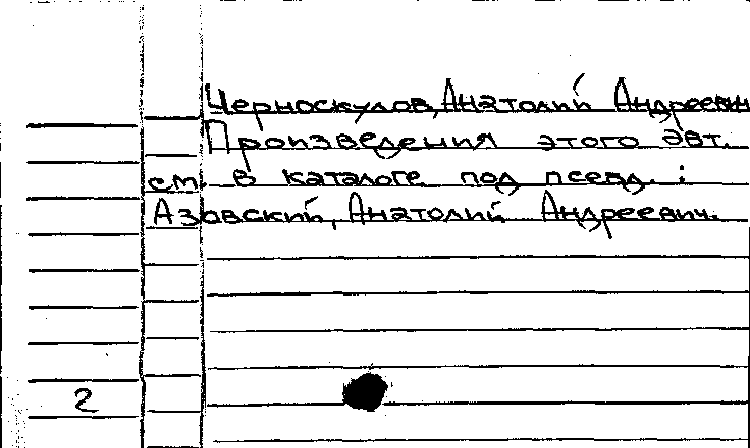 Черноскулов, Анатолий Андреевич
Произведения этого авт.
см. в каталоге под псевд.:
Азовский, Анатолий Андреевич.
2